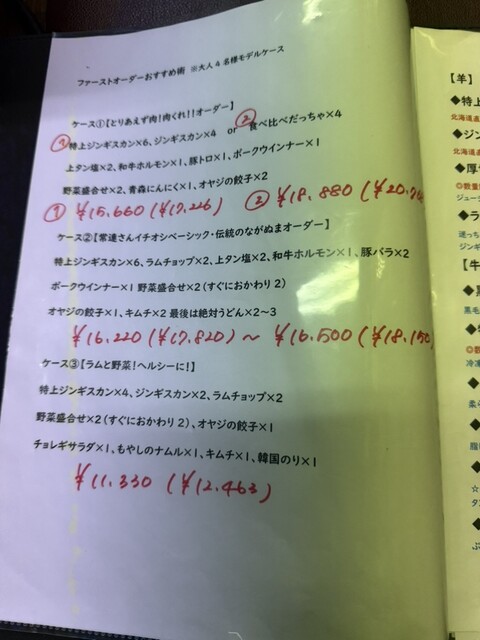 ファーストオーダーおすすめ術 ※大人4名様モデルケース
ケース①【とりあえず肉!肉くれ!!オーダー】
① 特上ジンギスカン×6、ジンギスカン×4 or ② 食べ比べだっちゃ×4
上タン塩×2、和牛ホルモン×1、豚トロ×1、ポークウインナー×1
野菜盛合せ×2、青森にんにく×1、オヤジの餃子×2
① ¥15.660(¥17.226) ② ¥18.880(¥20.7
ケース②【常連さんイチオシベーシック・伝統のながぬまオーダー】
特上ジンギスカン×6、ラムチョップ×2、上タン塩×2、和牛ホルモン×1、豚バラ×2
ポークウインナー×1 野菜盛合せ×2(すぐにおかわり2)
オヤジの餃子×1、キムチ×2 最後は絶対うどん×2~3
¥16.220(¥17.820)~ ¥16.500(¥18.150)
ケース③【ラムと野菜!ヘルシーに!】
特上ジンギスカン×4、ジンギスカン×2、ラムチョップ×2
野菜盛合せ×2(すぐにおかわり2)、オヤジの餃子×1
チョレギサラダ×1、もやしのナムル×1、キムチ×1、韓国のり×1
¥11.330(¥12.463)
【羊】
◆特上
北海道産
◆ジン
北海道産
◆厚
◎数量
ジュー
◆ラ
迷っち
ジンギ
【牛
◆
黒毛
◆
◎数
冷凍
◆
柔ら
◆
脂
◆
☆
タン
◆
ぷ